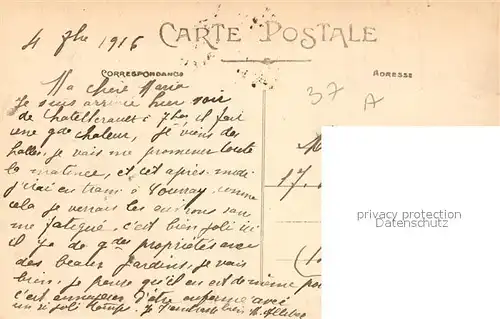 4 7bre 1916
CARTE POSTALE
CORRESPONDANCE
ADRESSE
37
A
Ma chère Maria
Je suis arrivée hier soir
de Chatellerault à 7h il fait
une gde chaleur, je viens des
halles, je vais me promener toute
la matinée, et cet après-midi
j'irai en tram à Vouvray, comme
cela je verrais les environs san
me fatigué, c'est bien joli ici
il y a de gdes propriétés avec
des beaux jardins, je vais
bien, je pense qu'il en est de même
c'est ennuyeux d'être enfermé avec
un si joli temps.
17.
privacy protection
Datenschutz